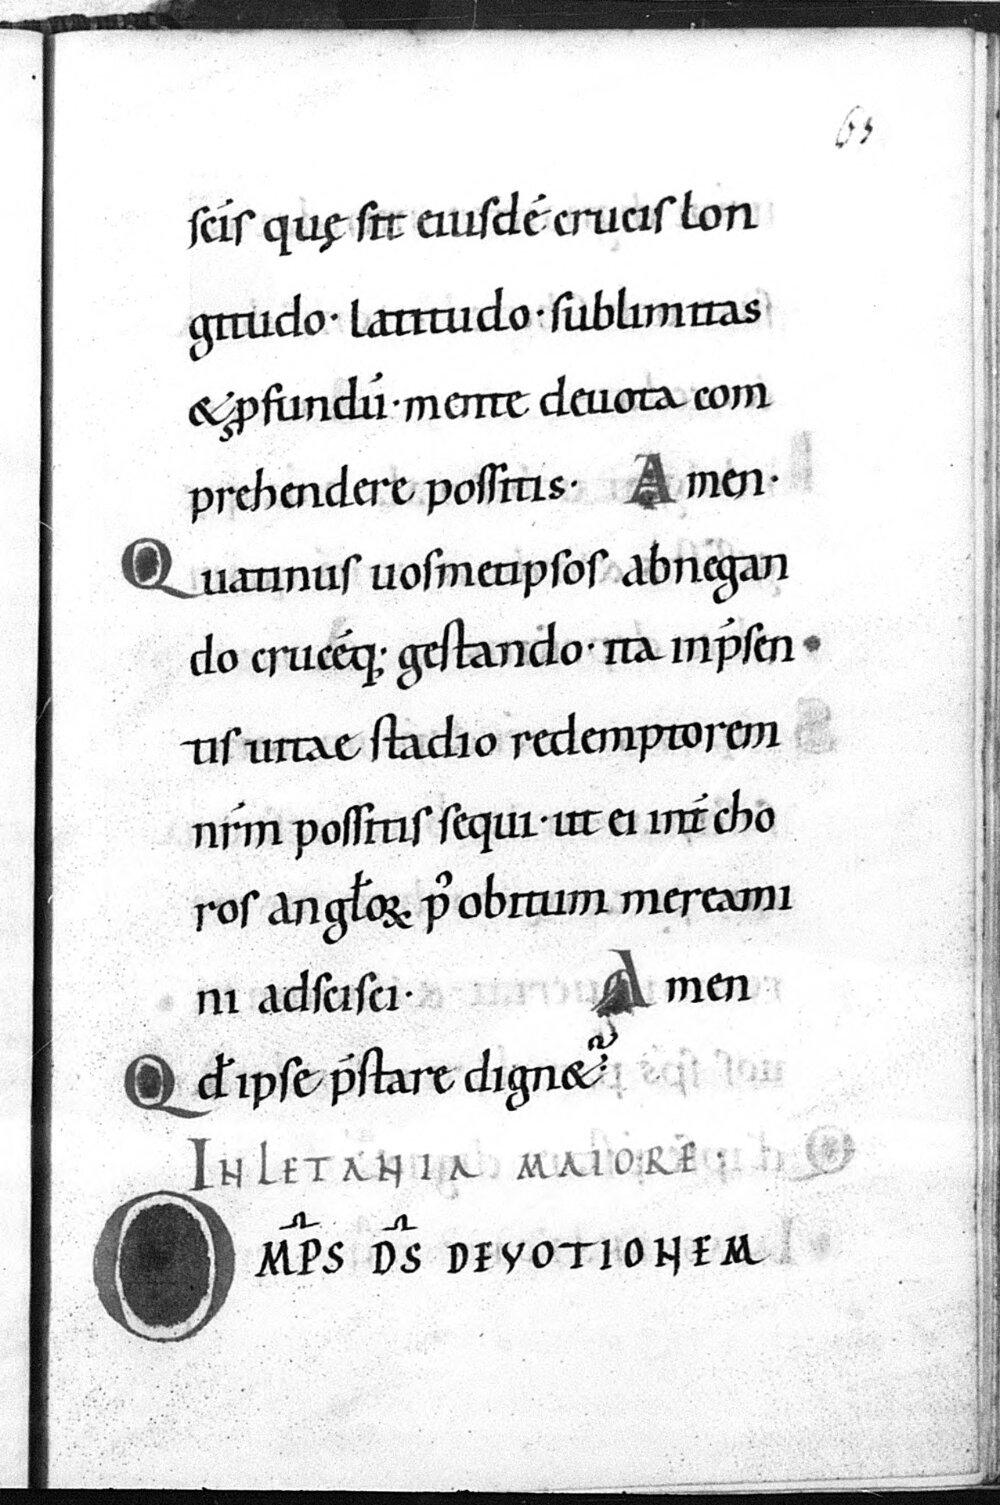 65
sc̄ıs quę sit eiusdē crucis lon
gitudo· latitudo· sublimitas
& ꝓfundū· mente deuota com
prehendere possitis· Amen·
Quatinus uosmetipsos abnegan
do crucēq; gestando· ita in p̄sen
tis uitae stadio redemptorem
nr̄m possitis sequi· ut ei int̄ cho
ros anglo̵ꝝ p̓ obitum mereami
ni adscisci· Amen
Qd̄ ipse p̄stare dign&ur
IN LETANIA MAIORE·
OMP̄S D̄S DEVOTIONEM